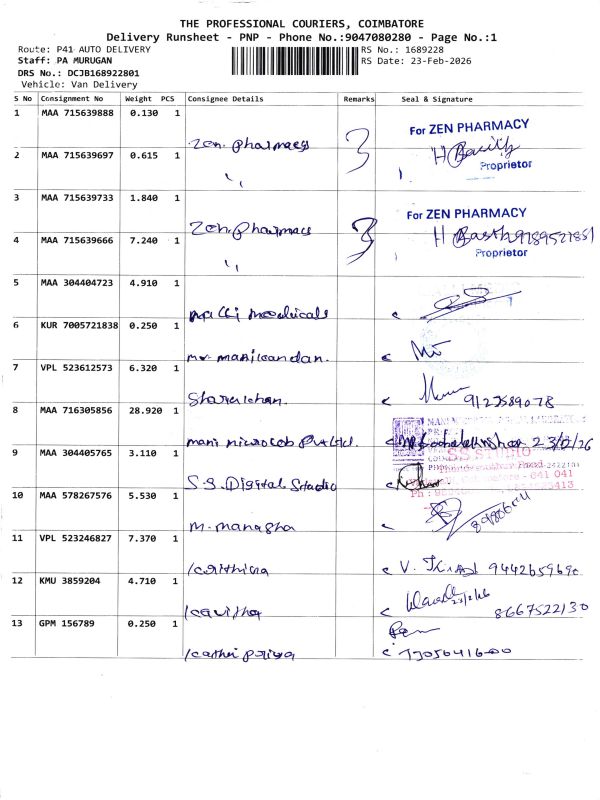 THE PROFESSIONAL COURIERS, COIMBATORE
Delivery Runsheet - PNP - Phone No.:9047080280 - Page No.:1
Route: P41 AUTO DELIVERY
RS No.: 1689228
Staff: PA MURUGAN
RS Date: 23-Feb-2026
DRS No.: DCJB168922801
Vehicle: Van Delivery
S No Consignment No Weight PCS Consignee Details Remarks Seal & Signature
1 MAA 715639888 0.130 1
Zen. pharmacy 3 For ZEN PHARMACY
2 MAA 715639697 0.615 1
Proprietor
3 MAA 715639733 1.840 1
Zen. pharmacy 3 For ZEN PHARMACY
4 MAA 715639666 7.240 1
9789527851
Proprietor
5 MAA 304404723 4.910 1
malli medicals
6 KUR 7005721838 0.250 1
mr. manikandan.
7 VPL 523612573 6.320 1
9123589078
8 MAA 716305856 28.920 1
mani microlab Pvt Ltd. 23/2/26
9 MAA 304405765 3.110 1
SS STUDIO
S.S. Digital Studio
641 041
10 MAA 578267576 5.530 1
M. managha
11 VPL 523246827 7.370 1
V. 9442659690
12 KMU 3859204 4.710 1
kavitha 23/2/26
8667522130
13 GPM 156789 0.250 1